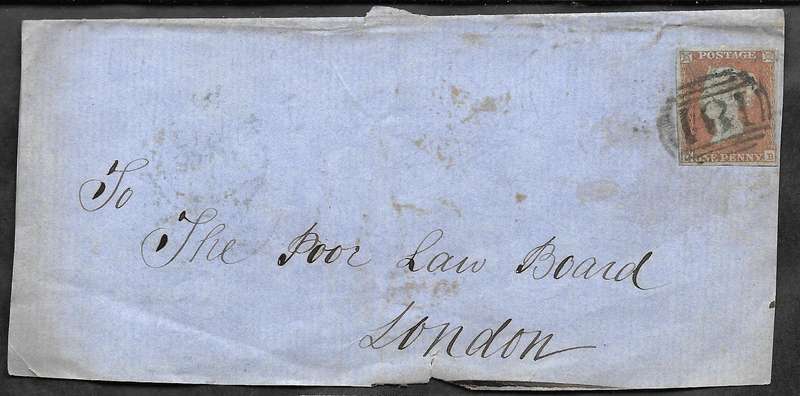 POSTAGE
181
ONE PENNY
To
The Poor Law Board
London